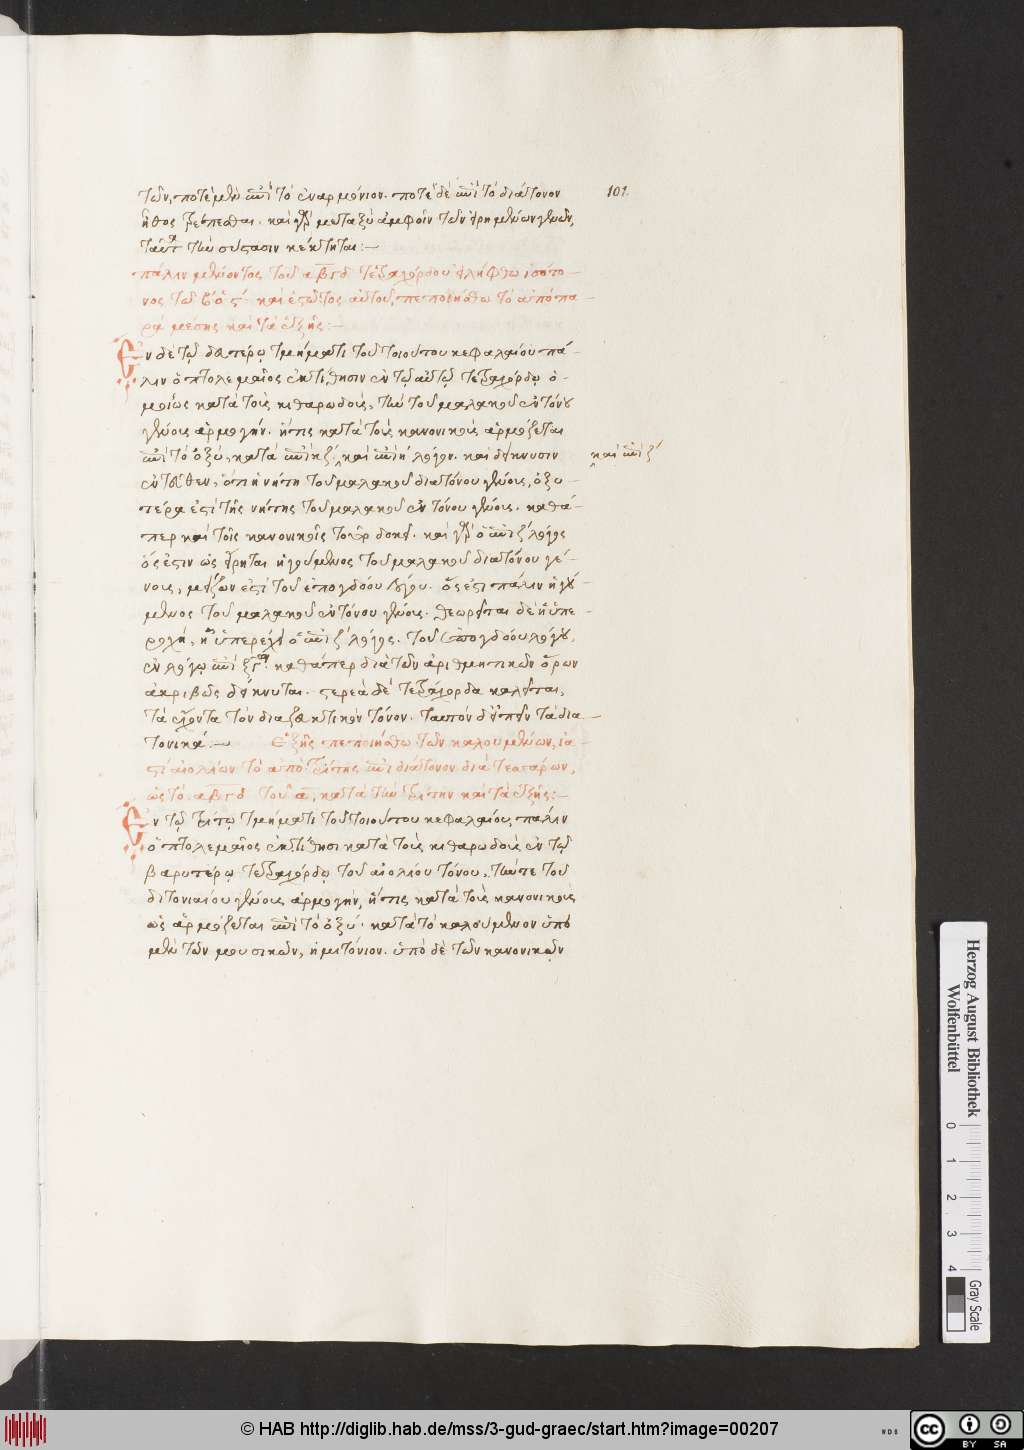 των, ποτὲ μὲν ἐπὶ τὸ ἐναρμόνιον. ποτὲ δὲ ἐπὶ τὸ διάτονον 101.
ἦθος τρέπεσθαι. καὶ γὰρ μεταξὺ ἀμφοῖν τῶν εἰρημένων γενῶν,
τὴν σύστασιν κέκτηται:—
πάλιν μένοντος τοῦ αβγδ τετραχόρδου εἰλήφθω ἰσότο-
νος τῷ καὶ ἑστῶτος αὐτοῦ, πεποιήσθω τὸ ἀπὸ πα-
ρὰ μέσης καὶ τὰ ἑξῆς:—
Ἐν δὲ τῷ δευτέρῳ τμήματι τοῦ τοιούτου κεφαλαίου πά-
λιν ὁ πτολεμαῖος ἐκτίθησιν ἐν τῷ αὐτῷ τετραχόρδῳ ὁ-
μοίως κατὰ τοὺς κιθαρωδοὺς, τὴν τοῦ μαλακοῦ ἐντόνου
γένους ἁρμογήν. ἥτις κατὰ τοὺς κανονικοὺς ἁρμόζεται
ἐπὶ τὸ ὀξὺ, κατὰ ἐπὶ κζ΄. καὶ ἐπὶ η΄ λόγον. καὶ δείκνυσιν καὶ ἐπὶ ζ΄
ἐντεῦθεν, ὅτι ἡ νήτη τοῦ μαλακοῦ διατόνου γένους, ὀξυ-
τέρα ἐστὶ τῆς νήτης τοῦ μαλακοῦ ἐντόνου γένους. καθά-
περ καὶ τοῖς κανονικοῖς δοκεῖ. καὶ γὰρ ὁ ἐπὶ ζ΄ λόγος
ὅς ἐστιν ὡς εἴρηται ἡγούμενος τοῦ μαλακοῦ διατόνου γέ-
νους, μείζων ἐστὶ τοῦ ἐπογδόου λόγου. ὅς ἐστι πάλιν ἡγού-
μενος τοῦ μαλακοῦ ἐντόνου γένους. θεωρεῖται δὲ ἡ ὑπε-
ροχὴ, ἣν ὑπερέχει ὁ ἐπὶ ζ΄ λόγος. τοῦ ἐπογδόου λόγου,
ἐν λόγῳ ἐπὶ ξγ. καθάπερ διὰ τῶν ἀριθμητικῶν ὅρων
ἀκριβῶς δείκνυται. στερεὰ δὲ τετράχορδα καλεῖται,
τὰ ἔχοντα τὸν διαζευκτικὸν τόνον. ταυτὸν δ᾽ εἰπεῖν τὰ δια-
τονικά:— Ἑξῆς πεποιήσθω τῶν καλουμένων, ἰα-
στιαιολίων τὸ ἀπὸ τρίτης ἐπὶ διάτονον διὰ τεσσάρων,
ὡς τὸ αβγδ τοῦ α, κατὰ τὴν τρίτην καὶ τὰ ἑξῆς:—
Ἐν τῷ τρίτῳ τμήματι τοῦ τοιούτου κεφαλαίου, πάλιν
ὁ πτολεμαῖος ἐκτίθησι κατὰ τοὺς κιθαρωδοὺς ἐν τῷ
βαρυτέρῳ τετραχόρδῳ τοῦ αἰολίου τόνου. τήν τε τοῦ
διτονιαίου γένους ἁρμογὴν, ἥτις κατὰ τοὺς κανονικοὺς
ὡς ἁρμόζεται ἐπὶ τὸ ὀξύ. κατὰ τὸ καλούμενον ὑπὸ
μὲν τῶν μουσικῶν, ἡμιτόνιον. ὑπὸ δὲ τῶν κανονικῶν
Herzog August Bibliothek
Wolfenbüttel
0 1 2 3 4
Gray Scale
© HAB http://diglib.hab.de/mss/3-gud-graec/start.htm?image=00207
cc BY SA